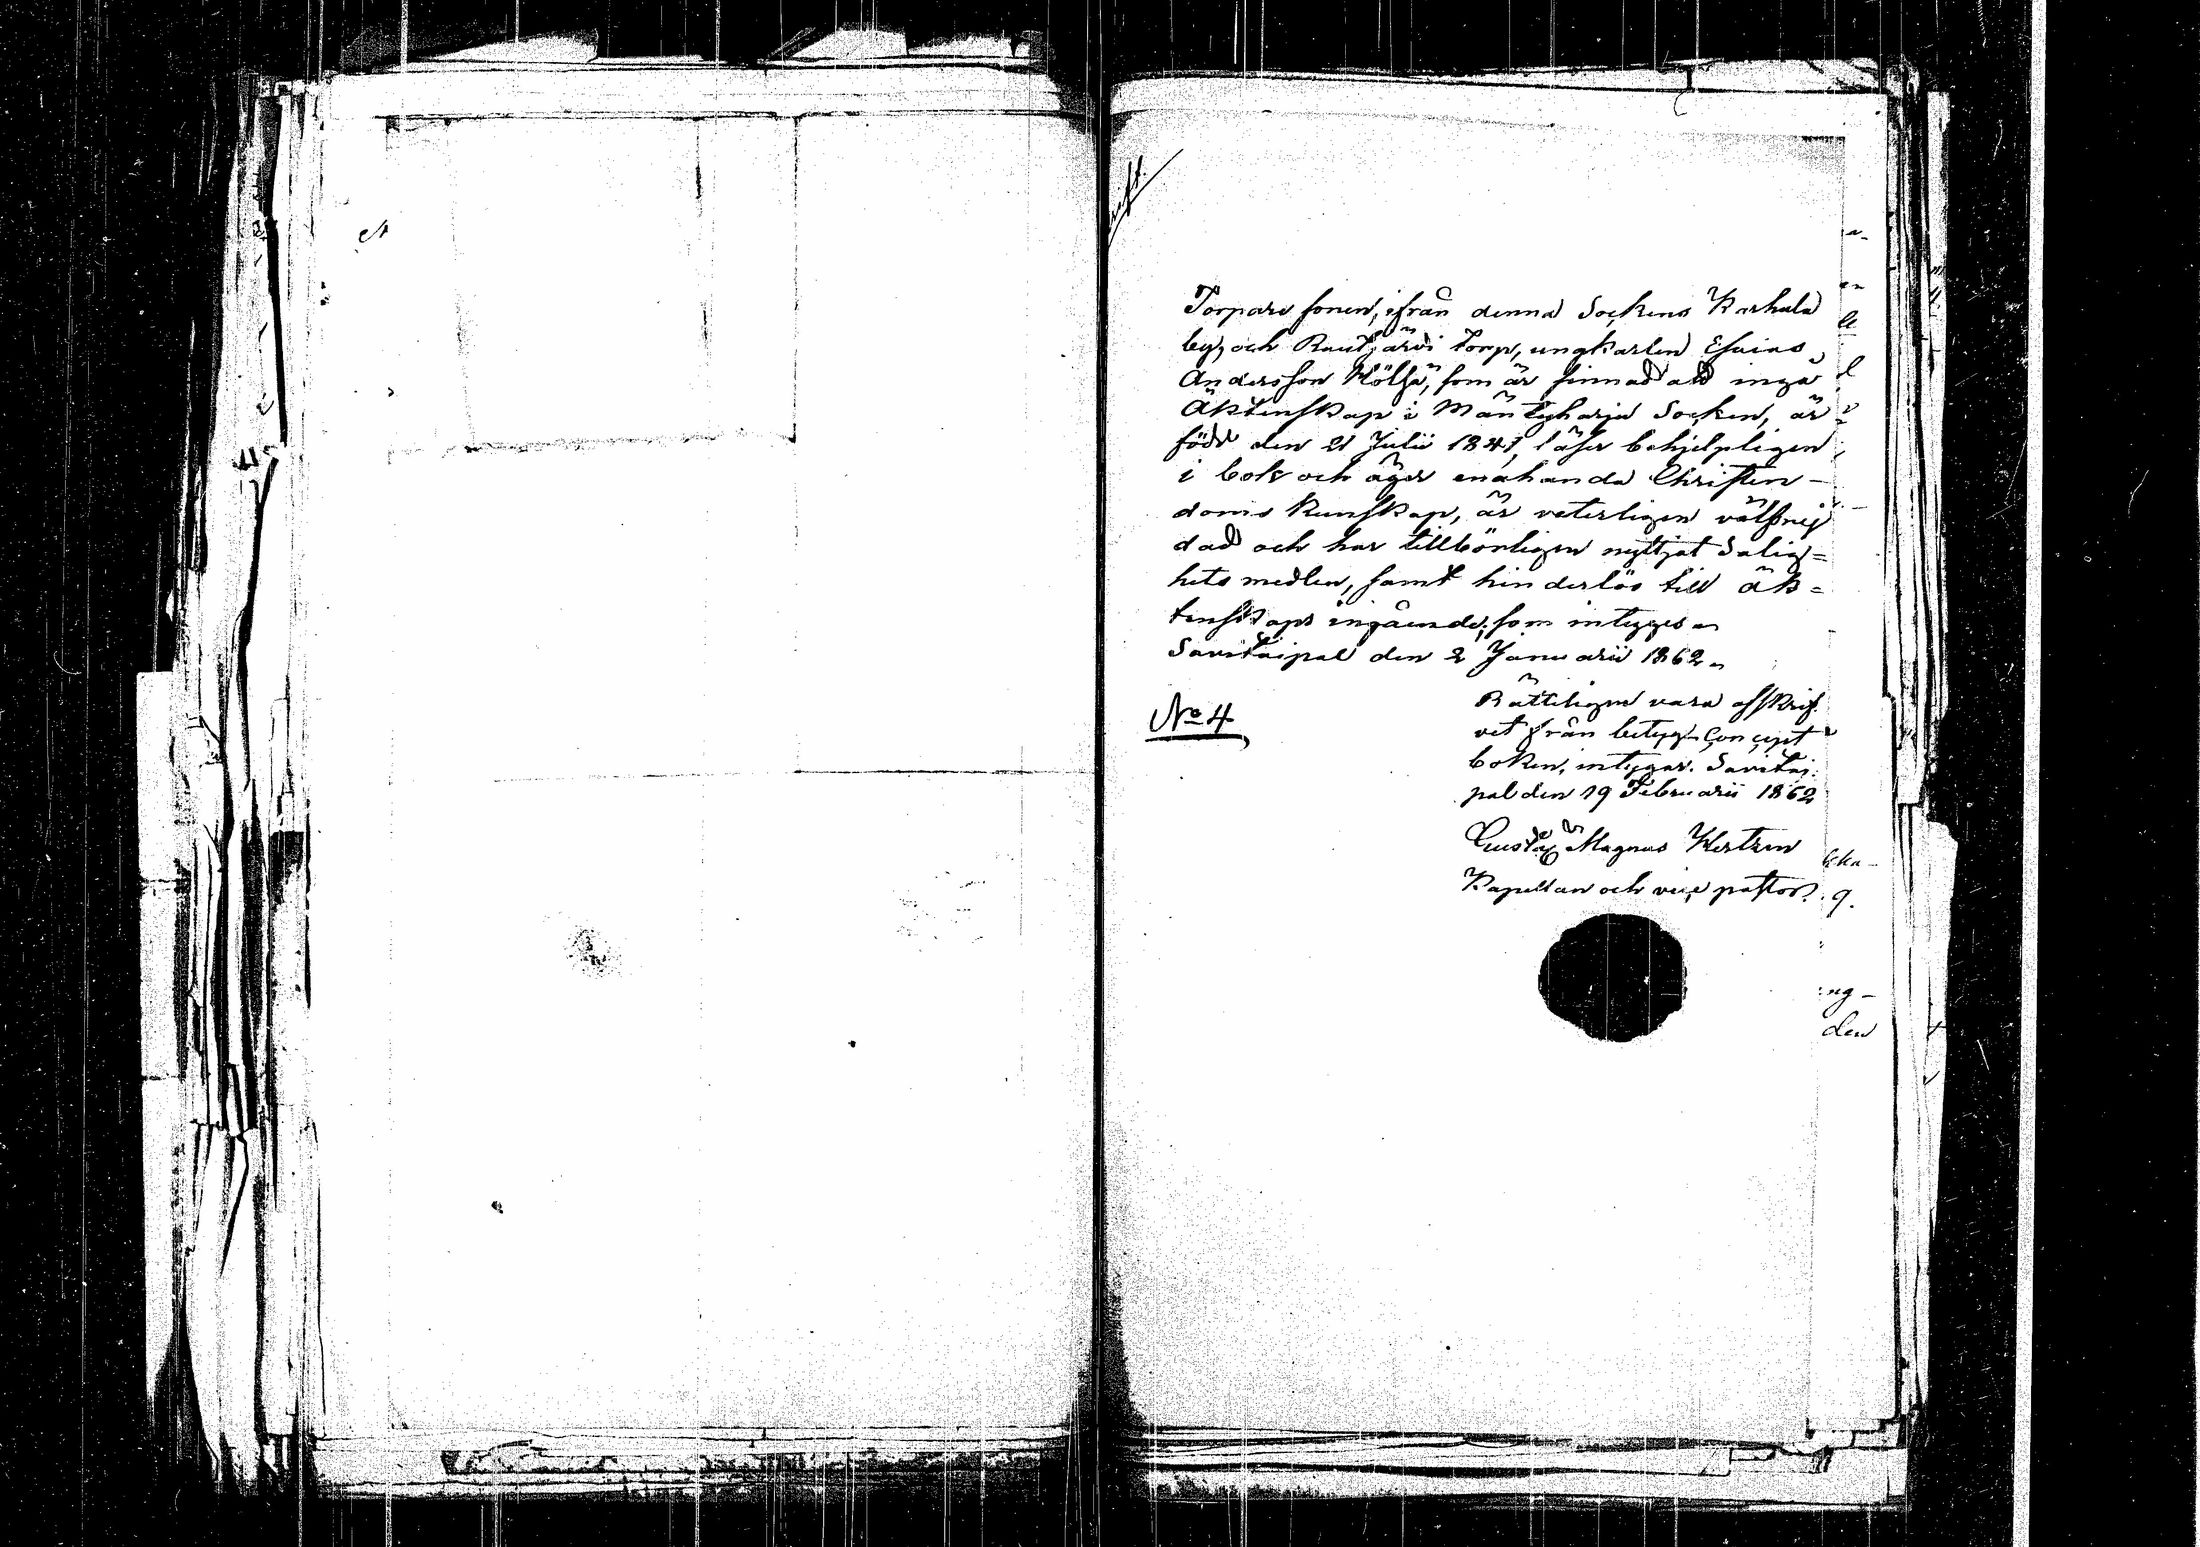 Torpare sonen, ifrån denna Sockens Karhula
by, och Rautjärvi torp, ungkarlen Esaias
Andersson Hölsä, som är sinnad att ingå
Äktenskap i Mäntyharju Socken, är
född den 21 Julii 1841, läser behjelpligen
i bok och äger enahanda Christen-
doms kunskap, är veterligen välfrej
dad och har tillbörligen nyttjat Salig=
hets medlen, samt hinderlös till äk=
tenskaps ingående; som intygges
Savitaipal den 2 Januarii 1862.
Rätteligen vara afskrif
vet från betygs Concept
boken, intygar. Savitai
pal den 19 Februarii 1862
No 4
Gustaf Magnus
Kapellan och vice pastor.
9.
ng-
den